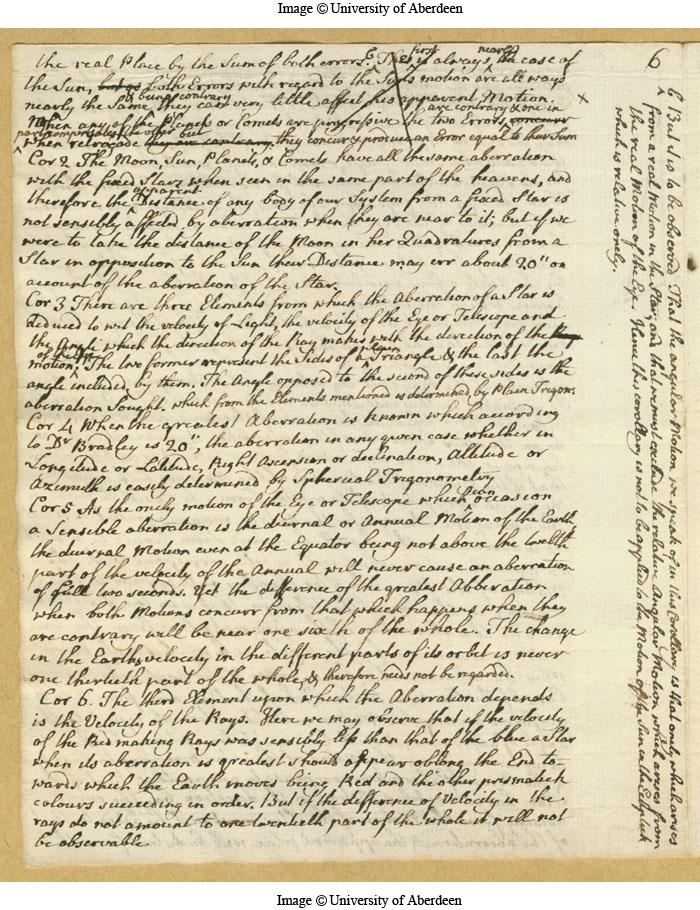 Image © University of Aberdeen
6
the real Place by the Sum of both errors. This first is always nearly the case of
the Sun, but as both Errors with regard to the Suns motion are all ways
nearly the same they can very little affect his apparent Motion.
When any of the Planets or Comets are progressive the two Errors are contrary & one in
part compensates the other but
when retrograde they are contrary they concur & produce an Error equal to their Sum
Cor 2 The Moon, Sun, Planets, & Comets have all the same aberration
with the fixed Stars when seen in the same part of the heavens, and
therefore the apparent Distance of any body of our System from a fixed Star is
not sensibly affected by aberration when they are near to it; but if we
were to take the distance of the Moon in her Quadratures from a
Star in opposition to the Sun their Distance may err about 20" on
account of the aberration of the Star.
Cor 3 There are three Elements from which the Aberration of a Star is
deduced to wit the velocity of Light, the velocity of the Eye or Telescope and
the Angle which the direction of the Ray makes with the direction of the
motion of the Eye. The two former represent the Sides of a plain Triangle & the last the
angle included by them. The Angle opposed to the second of these sides is the
aberration sought. which from the Elements mentioned is determined by Plain Trigon.
Cor 4 When the greatest Aberration is known which according
to Dr Bradley is 20", the aberration in any given case whether in
Longitude or Latitude, Right Ascension or declination, Altitude or
Azimuth is easily determined by Spherical Trigonometry
Cor 5 As the onely motion of the Eye or Telescope which can occasion
a Sensible aberration is the diurnal or Annual Motion of the Earth,
the diurnal Motion even at the Equator being not above the
part of the velocity of the Annual will never cause an aberration
of full two seconds. Yet the difference of the greatest Abberation
when both Motions concur from that which happens when they
are contrary will be near one sixth of the whole. The change
in the Earths velocity in the different parts of its orbit is never
one thirtieth part of the whole, & therefore needs not be regarded.
Cor 6. The third Element upon which the Aberration depends
is the Velocity of the Rays. Here we may observe that if the velocity
of the Red making Rays was sensibly less than that of the blue a Star
when its aberration is greatest should appear oblong the End to-
wards which the Earth moves being Red and the other prismatick
colours succeeding in order. But if the difference of Velocity in the
rays do not amount to one twentieth part of the whole it will not
be observable.
But it is to be observed That the angular Motion we speak of in this Corollary is that onely which arises
from a real Motion in the Star, and that we must exclude the relative Angular Motion which arises from
the real Motion of the Eye. Hence this corollary is not to be applied to the Motion of the Sun in the Ecliptick
which is relative onely.
Image © University of Aberdeen